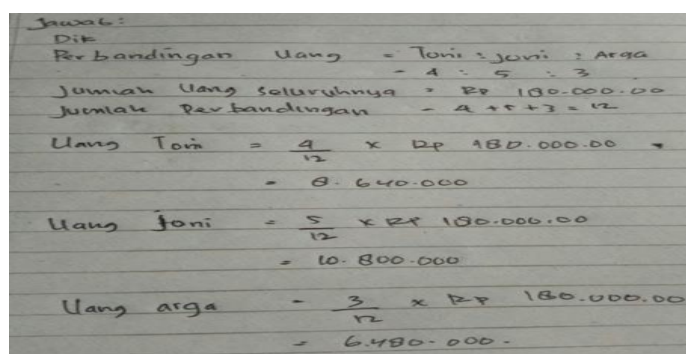 Jawab:
Dik
Perbandingan Uang = Toni : Joni : Arga
- 4 : 5 : 3
Jumlah Uang seluruhnya = Rp 180.000.00
Jumlah Perbandingan - 4 + 5 + 3 = 12
Uang Toni = 4/12 x Rp 180.000.00
= 8.640.000
Uang Joni = 5/12 x Rp 180.000.00
= 10.800.000
Uang arga - 3/12 x Rp 180.000.00
= 6.480.000-